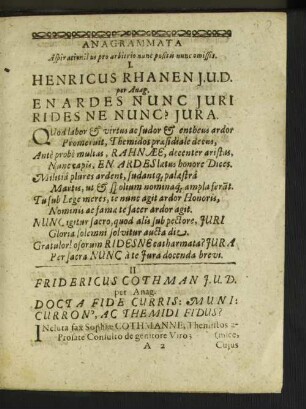 ANAGRAMMATA
Aspirationibus pro arbitrio nunc positis nunc omissis.
I.
HENRICUS RHANEN J.U.D.
per Anag.
EN ARDES NUNC JURI
RIDES NE NUNC? JURA.
QUod labor & virtus ac sudor & entheus ardor
Promeruit, Themidos præsidiale decus,
Ante probi multas, RAHNÆE, decenter aristas,
Nunc capis, EN ARDES latus honore Dices.
Militiâ plures ardent, sudantq; palæstrâ
Martis, ut & solum nominaq, ampla ferãt.
Tu sub Lege meres, te nunc agit ardor Honoris,
Nominis ac fama te sacer ardor agit.
NUNC igitur sacro, quod aliis sub pectore, JURI
Gloria solemni solvitur aucta die.
Gratulor! osorum RIDESNE catharmata? JURA
Per sacra NUNC à te Jura docenda brevi.
II
FRIDERICUS COTHMAN J.U.D.
per Anag.
DOCTA FIDE CURRIS: MUNI:
CURRON', AC THEMIDI FIDUS?
INcluta fax Sophiæ COTHMANNE, Themistos
Prosate Consulto de genitore Viro;
A 2
Cujus